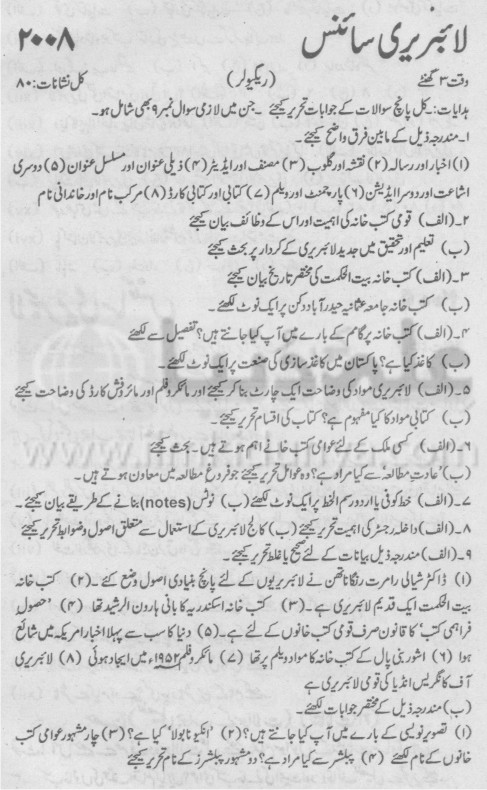 لائبریری سائنس ۲۰۰۸
وقت ۳ گھنٹے (ریگولر) کل نشانات: ۸۰
ہدایات:۔ کل پانچ سوالات کے جوابات تحریر کیجئے ۔ جن میں لازمی سوال نمبر ۹ بھی شامل ہو۔
۱۔ مندرجہ ذیل کے مابین فرق واضح کیجئے۔
(۱) اخبار اور رسالہ (۲) نقشہ اور گلوب (۳) مصنف اور ایڈیٹر (۴) ذیلی عنوان اور مسلسل عنوان (۵) دوسری
اشاعت اور دوسرا ایڈیشن (۶) پارچمنٹ اور ویلم (۷) کتابی اور کتابی کارڈ (۸) مرکب نام اور خاندانی نام
۲۔ (الف) قومی کتب خانہ کی اہمیت اور اس کے وظائف بیان کیجئے
(ب) تعلیم اور تحقیق میں جدید لائبریری کے کردار پر بحث کیجئے
۳۔ (الف) کتب خانہ بیت الحکمت کی مختصر تاریخ بیان کیجئے
(ب) کتب خانہ جامعہ عثمانیہ حیدرآباد دکن پر ایک نوٹ لکھئے۔
۴۔ (الف) کتب خانہ پرگامم کے بارے میں آپ کیا جانتے ہیں؟ تفصیل سے لکھئے
(ب) کاغذ کیا ہے؟ پاکستان میں کاغذ سازی کی صنعت پر ایک نوٹ لکھئے۔
۵۔ (الف) لائبریری مواد کی وضاحت ایک چارٹ بنا کر کیجئے اور مائکروفلم اور مائروفش کارڈ کی وضاحت کیجئے
(ب) کتابی مواد کا کیا مفہوم ہے؟ کتاب کی اقسام تحریر کیجئے۔
۶۔ (الف) کسی ملک کے لئے عوامی کتب خانے اہم ہوتے ہیں۔ بحث کیجئے
(ب) 'عادتِ مطالعہ' سے کیا مراد ہے؟ وہ عوامل تحریر کیجئے جو فروغ مطالعہ میں معاون ہوتے ہیں۔
۷۔ (الف) خط کوفی یا اردو رسم الخط پر ایک نوٹ لکھئے (ب) نوٹس (notes) بنانے کے طریقے بیان کیجئے۔
۸۔ (الف) داخلہ رجسٹر کی اہمیت تحریر کیجئے (ب) کالج لائبریری کے استعمال سے متعلق اصول و ضوابط تحریر کیجئے
۹۔ (الف) مندرجہ ذیل بیانات کے لئے صحیح یا غلط تحریر کیجئے۔
(۱) ڈاکٹر شیالی رامرت رنگاناتھن نے لائبریریوں کے لئے پانچ بنیادی اصول وضع کئے۔ (۲) کتب خانہ
بیت الحکمت ایک قدیم لائبریری ہے۔ (۳) کتب خانہ اسکندریہ کا بانی ہارون الرشید تھا (۴) 'حصولِ
فراہمی کتب' کا قانون صرف قومی کتب خانوں کے لئے ہے۔ (۵) دنیا کا سب سے پہلا اخبار امریکہ میں شائع
ہوا (۶) اشور بنی پال کے کتب خانہ کا مواد ویلم پر تھا (۷) مائکروفلم ۱۹۵۲ء میں ایجاد ہوئی (۸) لائبریری
آف کانگریس انڈیا کی قومی لائبریری ہے
(ب) مندرجہ ذیل کے مختصر جوابات لکھئے۔
(۱) تصویر نویسی کے بارے میں آپ کیا جانتے ہیں؟ (۲) 'انکیونابولا' کیا ہے؟ (۳) چار مشہور عوامی کتب
خانوں کے نام لکھئے (۴) پبلشر سے کیا مراد ہے؟ دو مشہور پبلشرز کے نام تحریر کیجئے